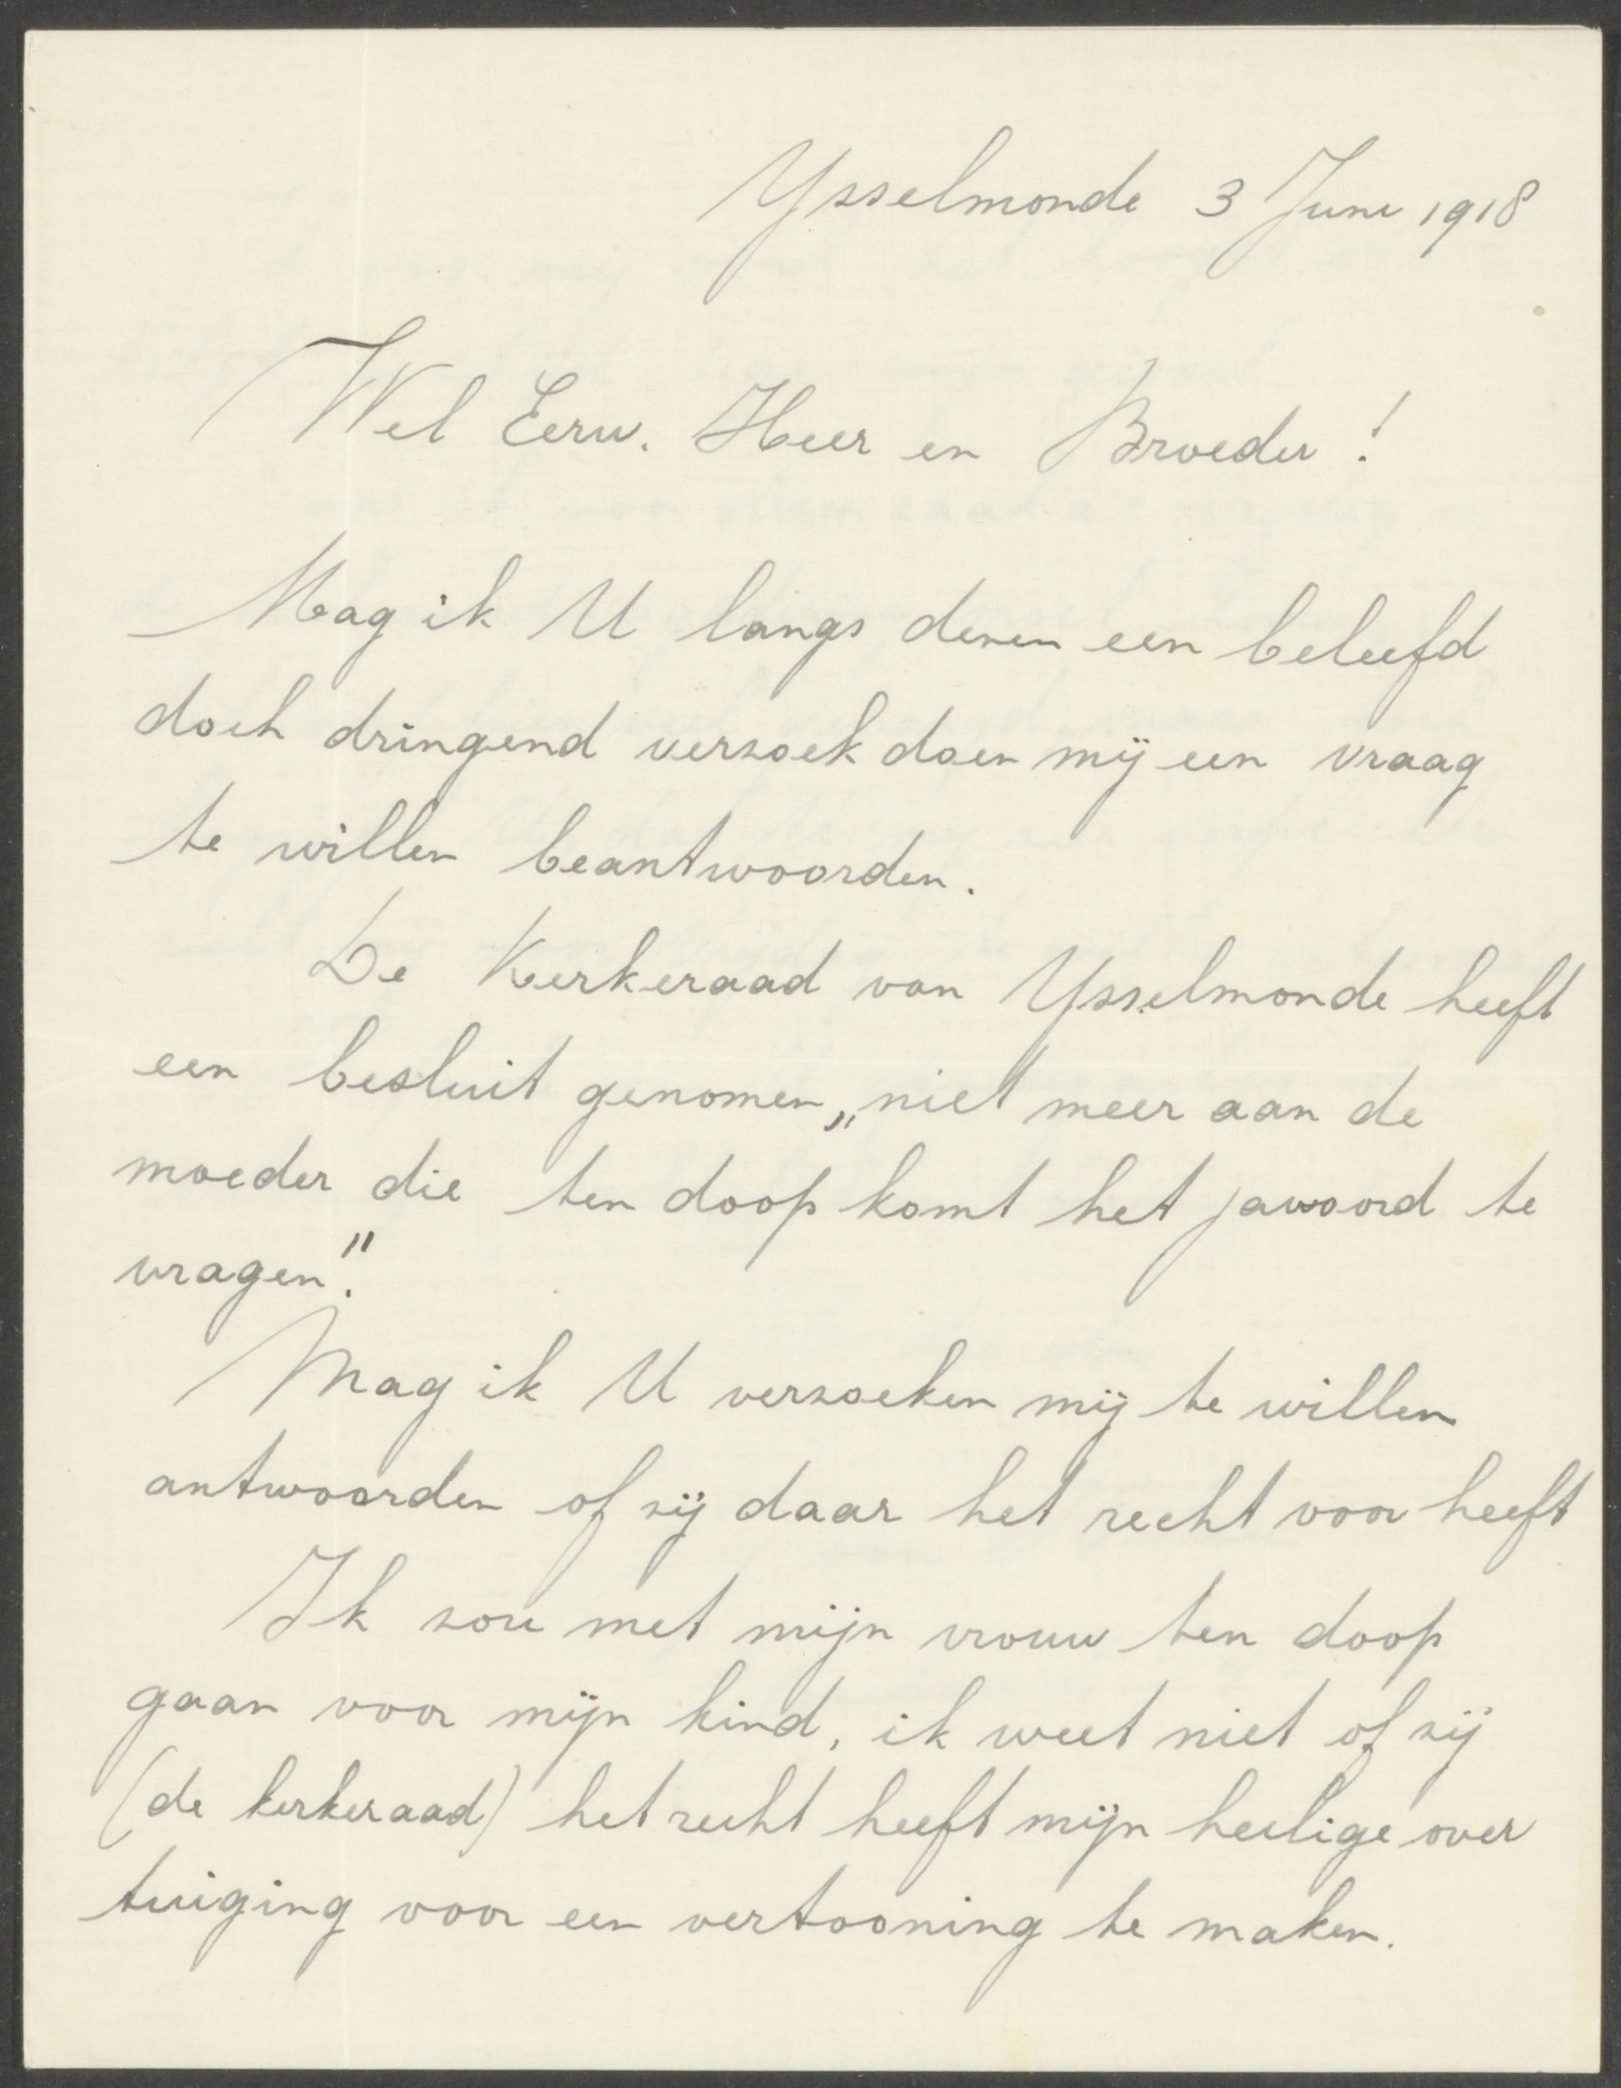 Ysselmonde 3 Juni 1918
Wel Eerw. Heer en Broeder!
Mag ik U langs dezen een beleefd
doch dringend verzoek doen mij een vraag
te willen beantwoorden.
De Kerkeraad van Ysselmonde heeft
een besluit genomen „niet meer aan de
moeder die ten doop komt het jawoord te
vragen".
Mag ik U verzoeken mij te willen
antwoorden of zij daar het recht voor heeft
Ik zou met mijn vrouw ten doop
gaan voor mijn kind, ik weet niet of zij
(de kerkeraad) het recht heeft mijn heilige over
tuiging voor een vertooning te maken.